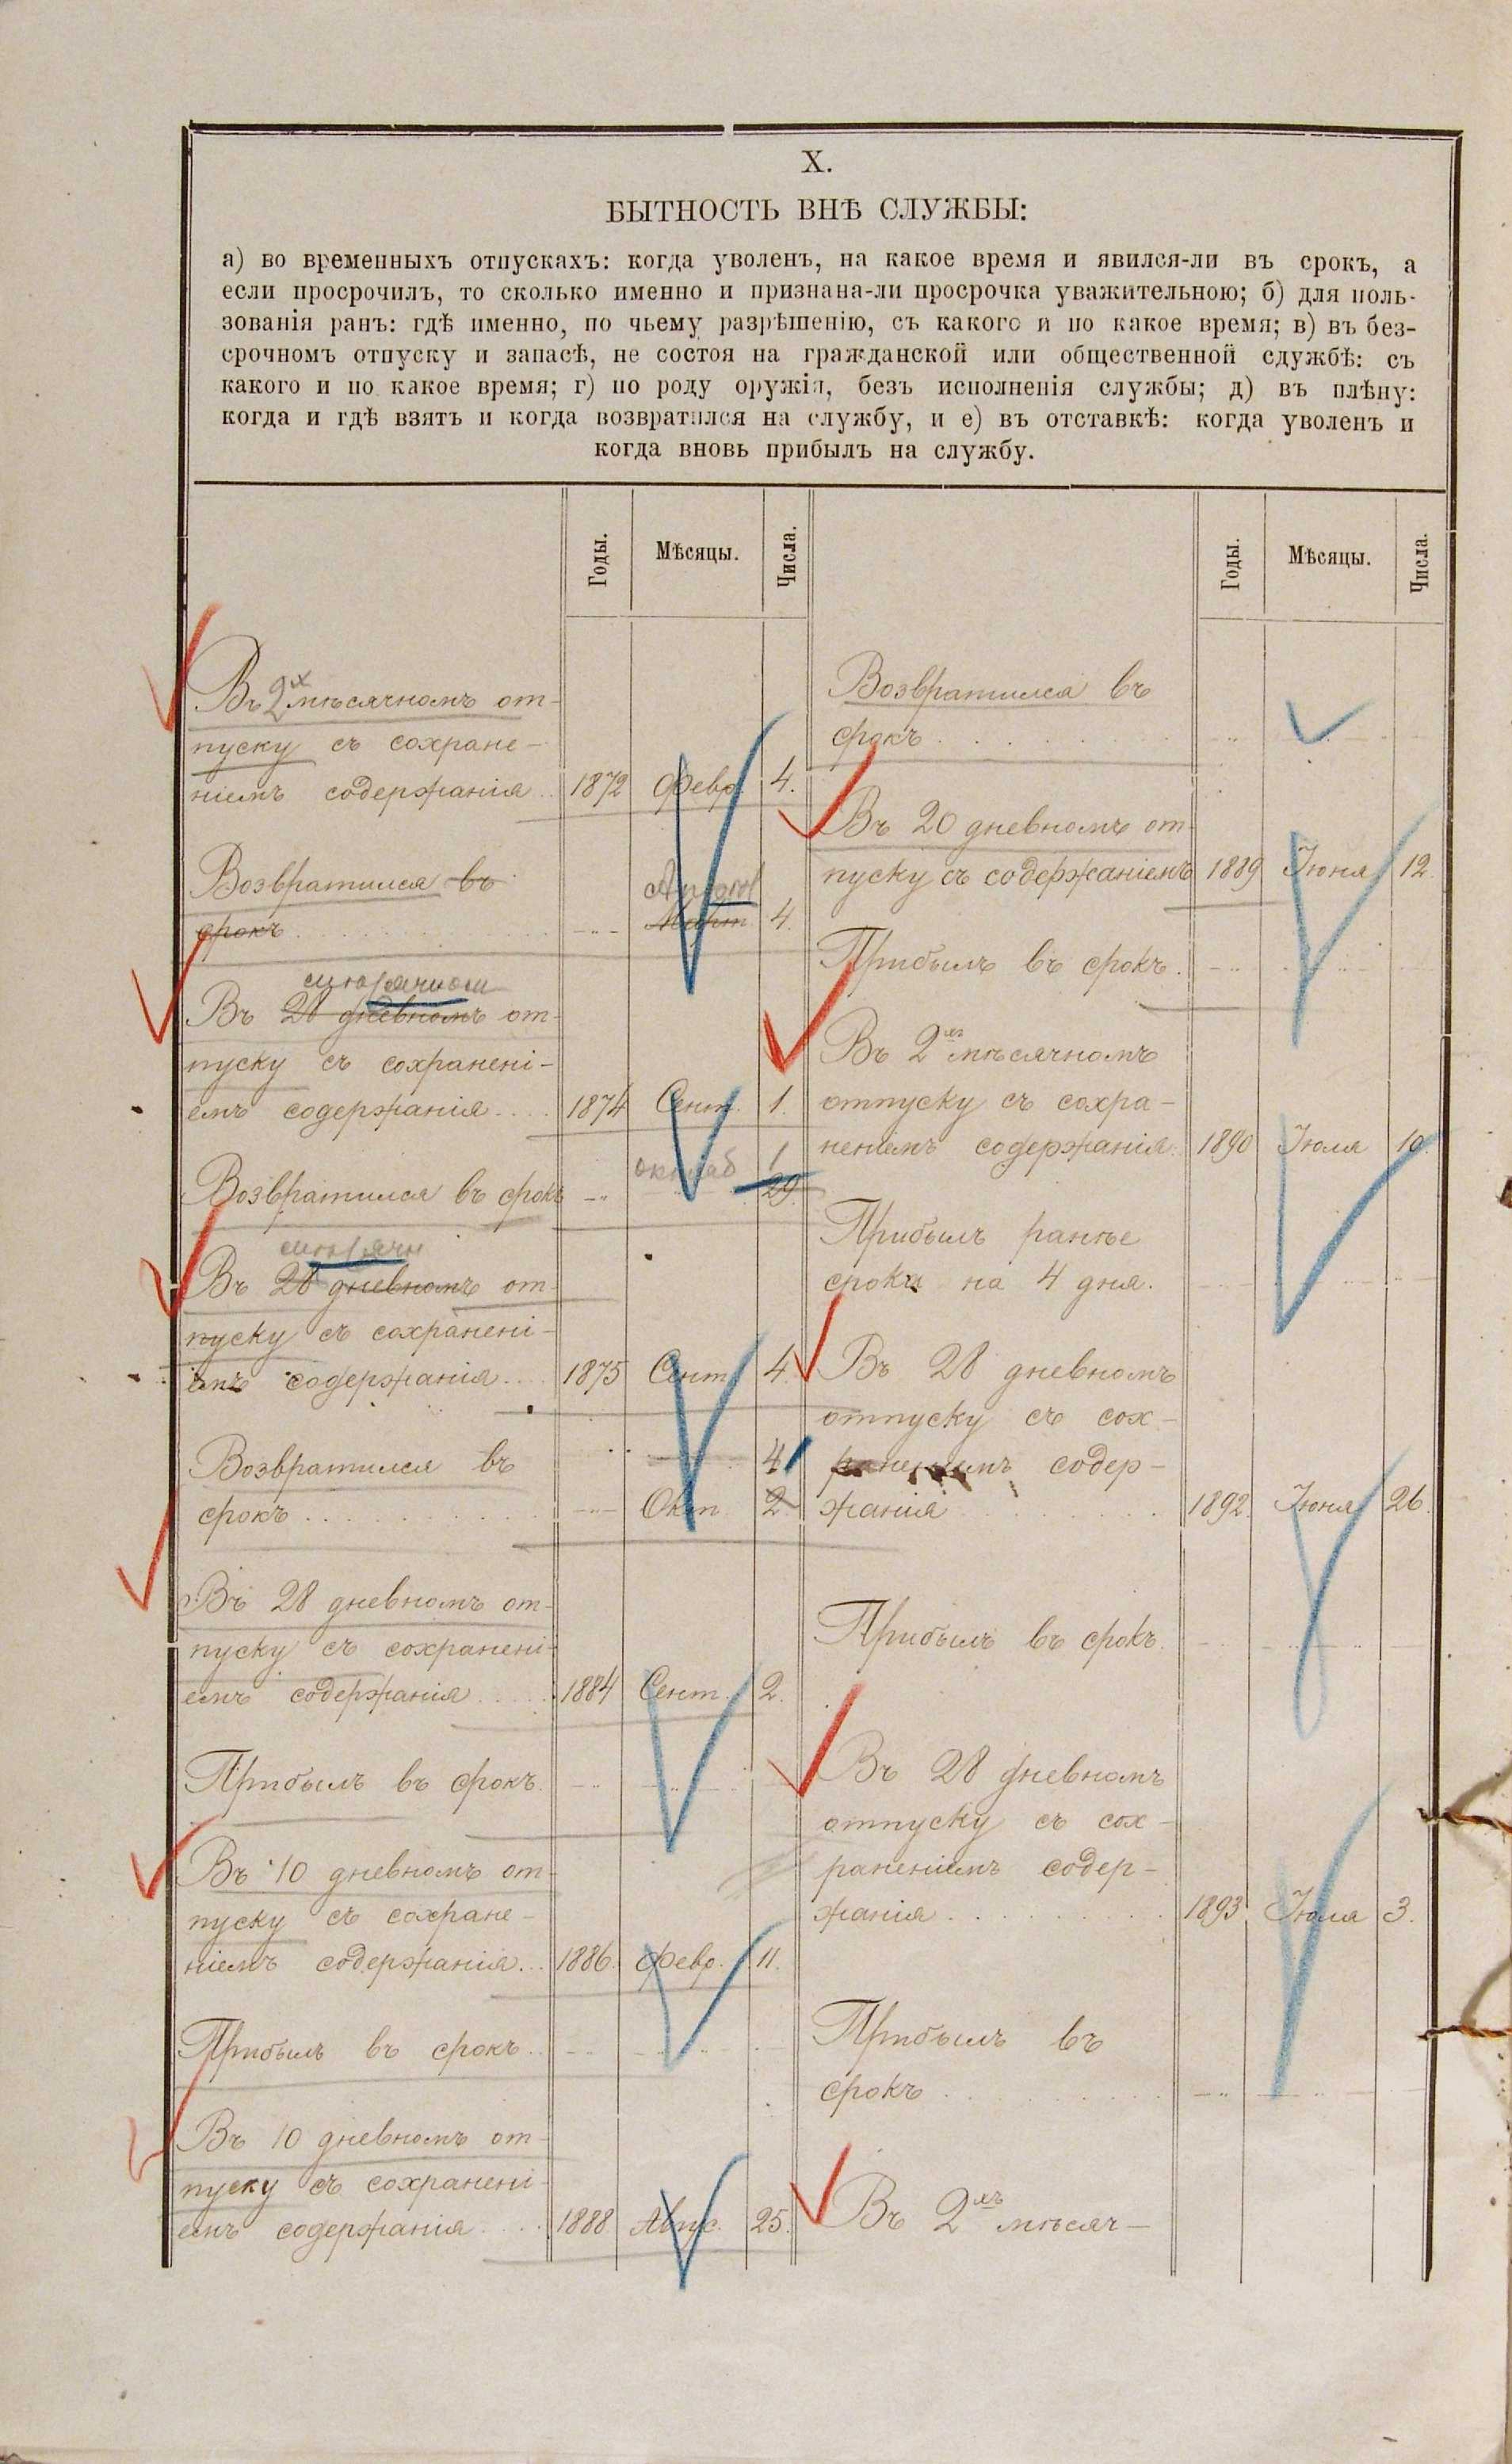 X.
БЫТНОСТЬ ВНѢ СЛУЖБЫ:
а) во временныхъ отпускахъ: когда уволенъ, на какое время и явился-ли въ срокъ, а
если просрочилъ, то сколько именно и признана-ли просрочка уважительною; б) для поль-
зованія ранъ: гдѣ именно, по чьему разрѣшенію, съ какого и по какое время; в) въ без-
срочномъ отпуску и запасѣ, не состоя на гражданской или общественной службѣ: съ
какого и по какое время; г) по роду оружія, безъ исполненія службы; д) въ плѣну:
когда и гдѣ взятъ и когда возвратился на службу, и е) въ отставкѣ: когда уволенъ и
когда вновь прибылъ на службу.
Годы. Мѣсяцы. Числа.
Въ 2х мѣсячномъ от-
пуску съ сохране-
ніемъ содержанія .. 1872 Февр. 4.
Возвратился въ
срокъ Март 4.
Въ 28 дневномъ от-
пуску съ сохранені-
емъ содержанія .... 1874 Сент. 1.
октяб 1
Возвратился въ срокъ 29.
Въ 28 дневномъ от-
пуску съ сохранені-
емъ содержанія .... 1875 Сент. 4.
Возвратился въ 4
срокъ Окт. 2.
Въ 28 дневномъ от-
пуску съ сохранені-
емъ содержанія .... 1884 Сент. 2.
Прибылъ въ срокъ.
Въ 10 дневномъ от-
пуску съ сохране-
ніемъ содержанія ... 1886. Февр. 11.
Прибылъ въ срокъ ..
Въ 10 дневномъ от-
пуску съ сохранені-
емъ содержанія .... 1888 Авгус. 25.
Годы. Мѣсяцы. Числа.
Возвратился въ
срокъ
Въ 20 дневномъ от-
пуску съ содержаніемъ 1889 Іюня 12.
Прибылъ въ срокъ.
Въ 2хъ мѣсячномъ
отпуску съ сохра-
неніемъ содержанія. 1890 Іюля 10.
Прибылъ ранѣе
срока на 4 дня.
Въ 28 дневномъ
отпуску съ сох-
раненіемъ содер-
жанія 1892. Іюня 26.
Прибылъ въ срокъ.
Въ 28 дневномъ
отпуску съ сох-
раненіемъ содер-
жанія 1893 Іюля 3.
Прибылъ въ
срокъ
Въ 2хъ мѣсяч-